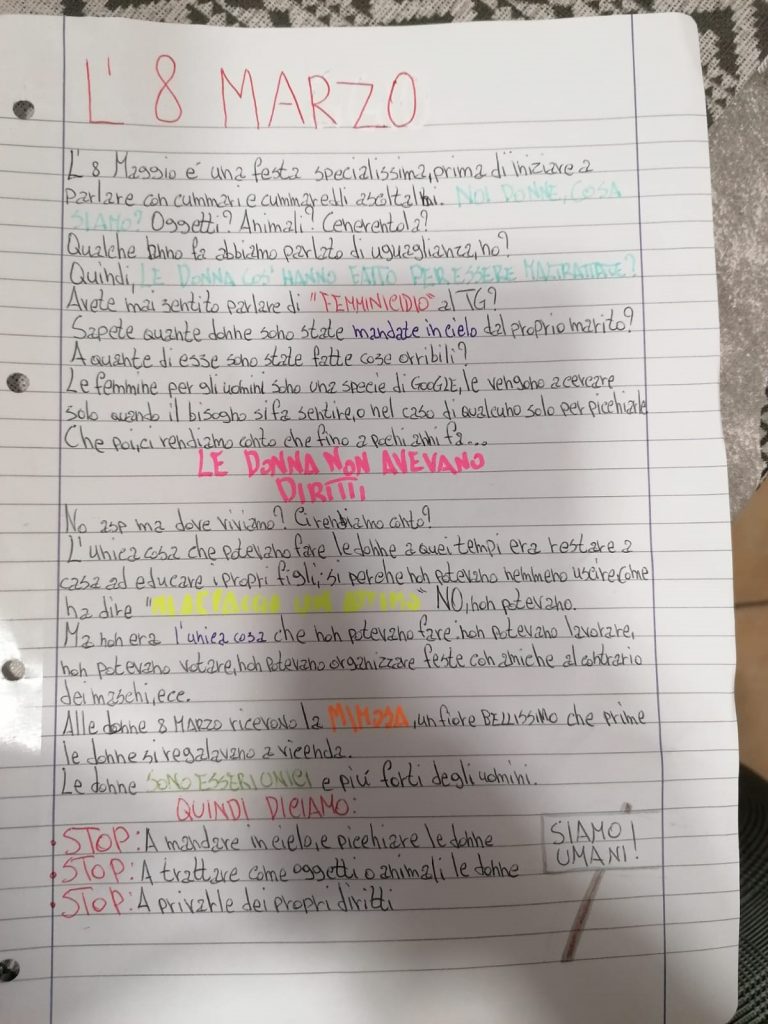 L' 8 MARZO
L' 8 Maggio é una festa specialissima, prima di iniziare a
parlare con cummari e cummaredli ascoltatmi. NOI DONNE, COSA
SIAMO? Oggetti? Animali? Cenerentola?
Qualche anno fa abbiamo parlato di uguaglianza, no?
Quindi, LE DONNA COS' HANNO FATTO PER ESSERE MALTRATTATE?
Avete mai sentito parlare di "FEMMINICIDIO" al TG?
Sapete quante donne sono state mandate in cielo dal proprio marito?
A quante di esse sono state fatte cose orribili?
Le femmine per gli uomini sono una specie di GOOGLE, le vengono a cercare
solo quando il bisogno si fa sentire, o nel caso di qualcuno solo per picchiarle
Che poi, ci rendiamo conto che fino a pochi anni fa...
LE DONNA NON AVEVANO
DIRITTI
No asp ma dove viviamo? Ci rendiamo conto?
L'unica cosa che potevano fare le donne a quei tempi era restare a
casa ad educare i propri figli; si perche non potevano nemmeno uscire, come
ha dire " UN ATTIMO" NO, non potevano.
Ma non era l'unica cosa che non potevano fare. non potevano lavorare,
non potevano votare, non potevano organizzare feste con amiche al contrario
dei maschi, ecc.
Alle donne 8 MARZO ricevono la MIMOSA, un fiore BELLISSIMO che prime
le donne si regalavano a vicenda.
Le donne SONO ESSERI UNICI e piú forti degli uomini.
QUINDI DICIAMO:
• STOP: A mandare in cielo, e picchiare le donne
• STOP: A trattare come oggetti o animali le donne
• STOP: A privarle dei propri diritti
SIAMO
UMANI!